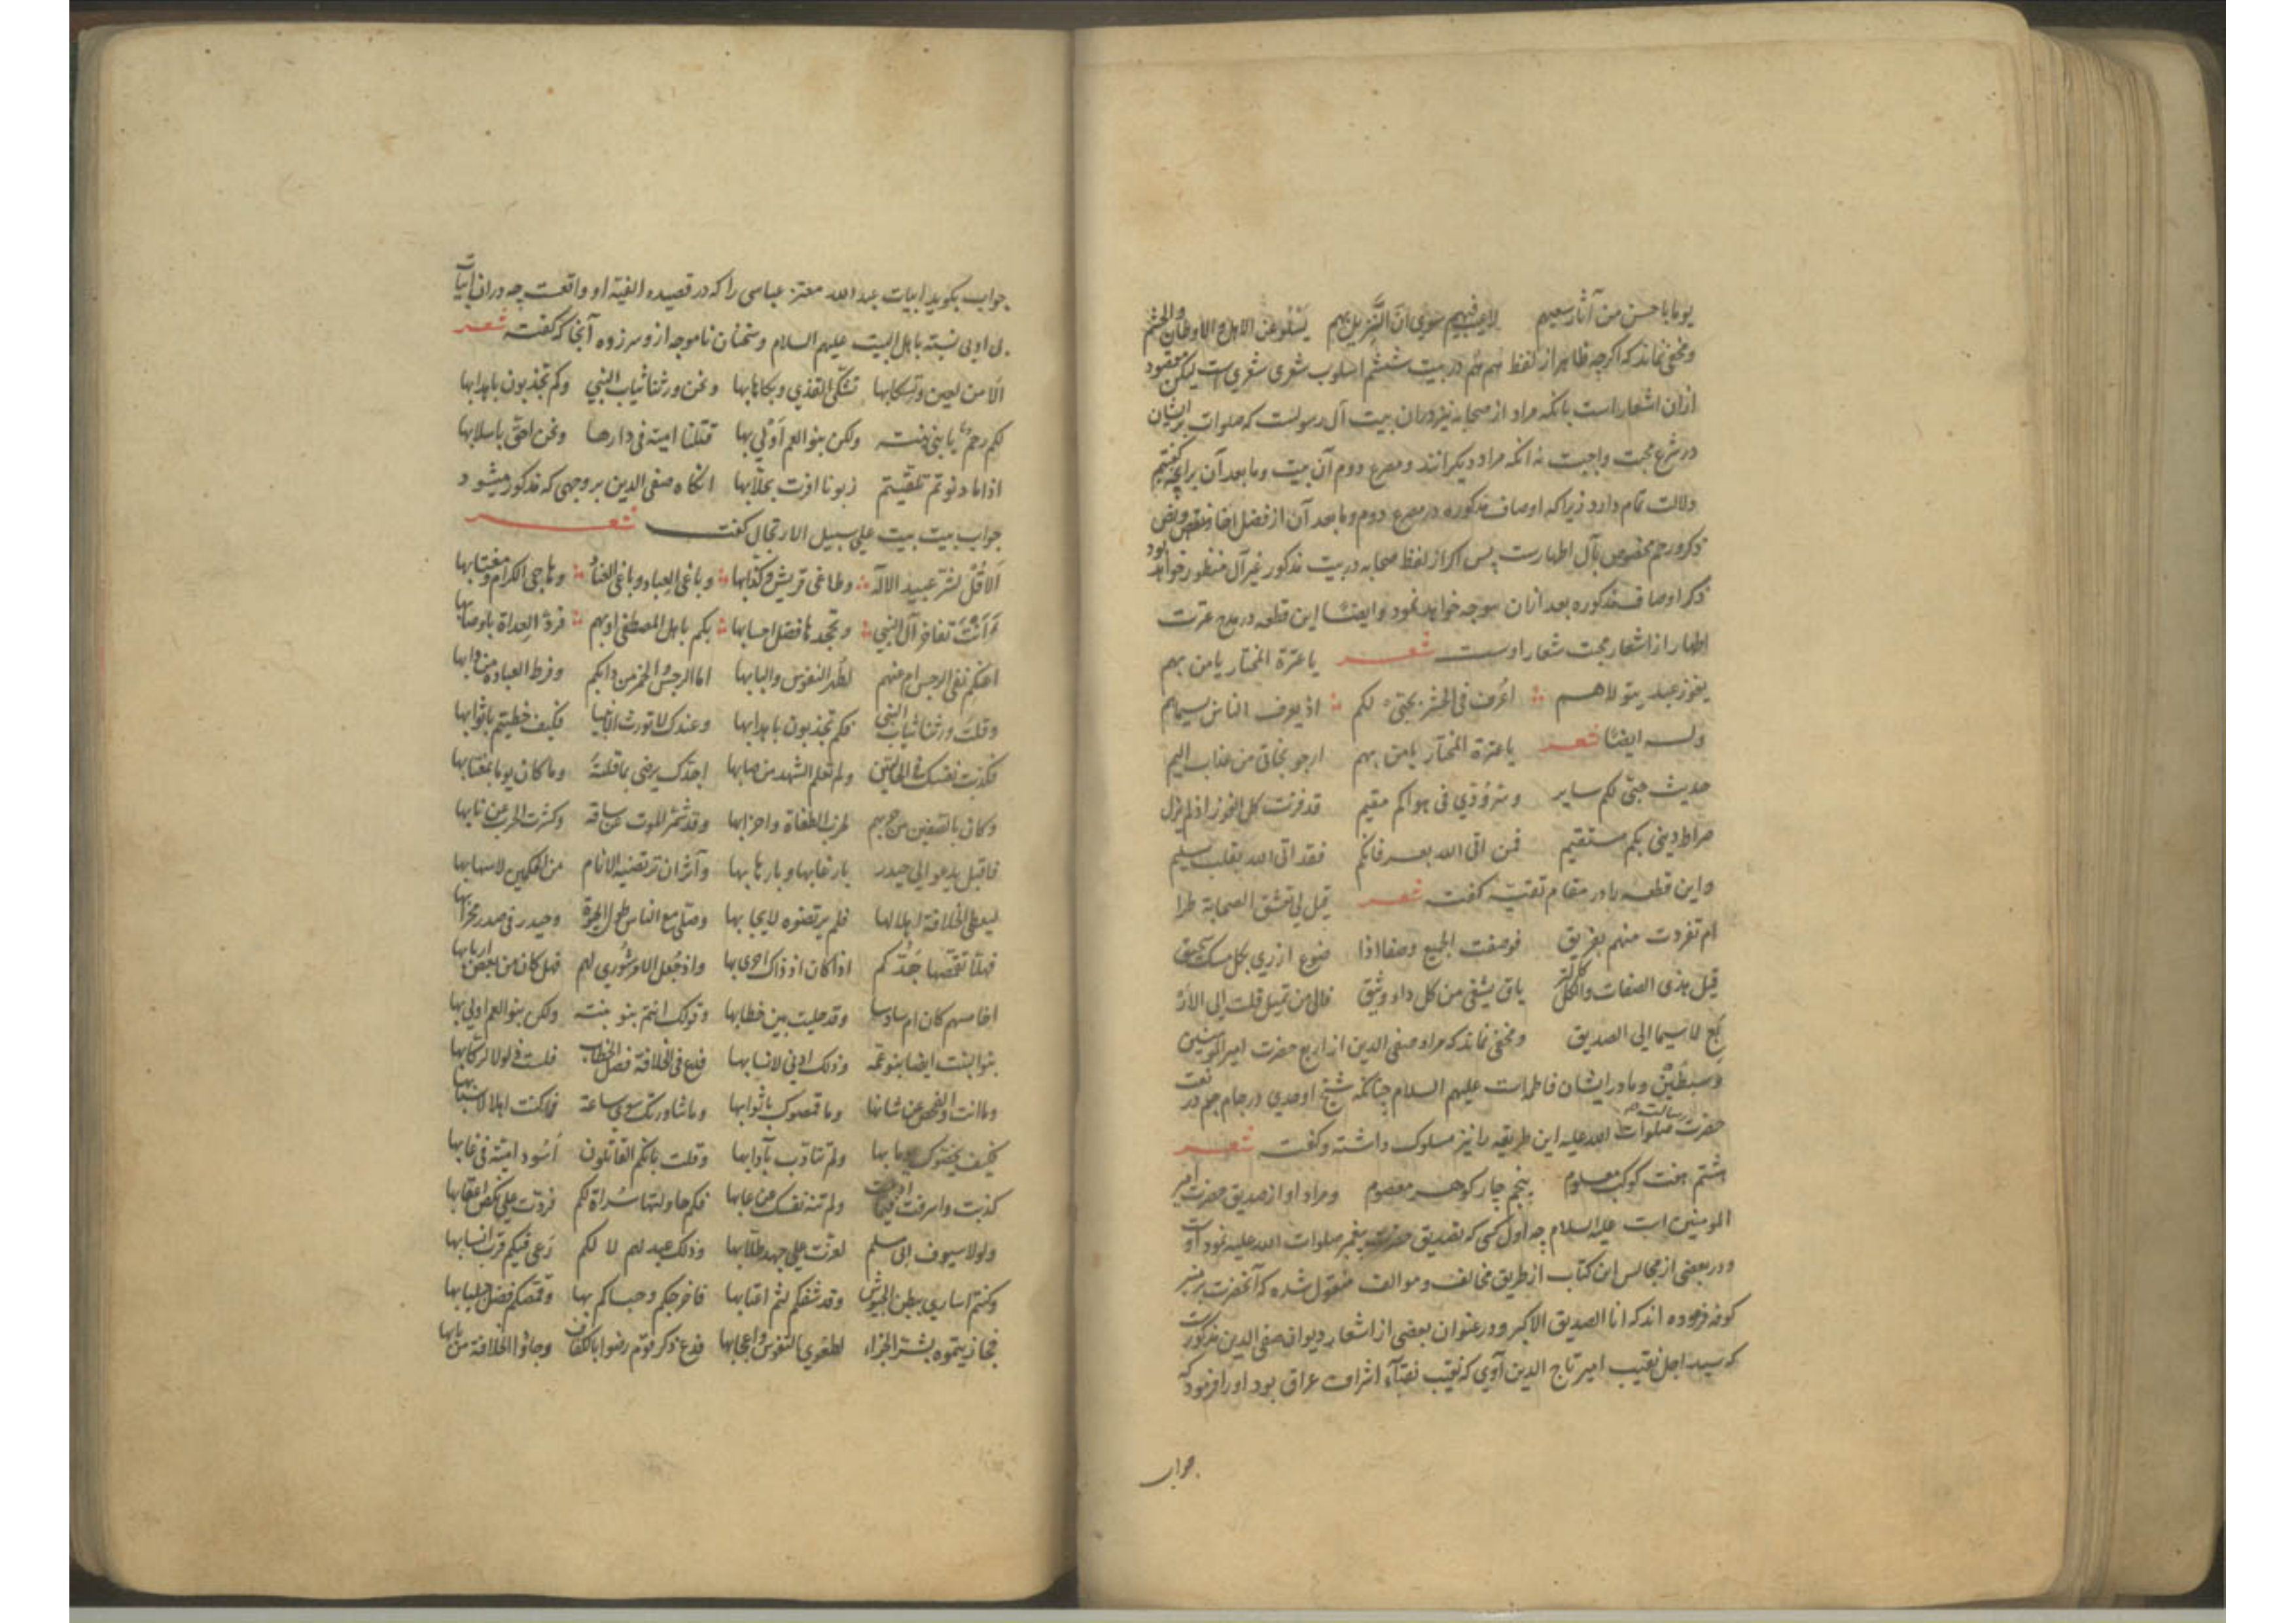 يوما باحسن من آثار سعيهم لاعيب فيهم سوى ان النزيل بهم يسلو عن الاهل الاوطان والحشم
ومخفی نماند که اکرچه ظاهر از لفظ هم هم در بیت ششم اسلوب شعری است لیکن مقصود
ازان اشعار است بانکه مراد از صحابه نیز دران بیت آل رسولست که صلوات بر ایشان
در شرع محبت واجبت نه انکه مراد دیکرانند ومصرع دوم آن بیت وما بعد آن برانچه کفتیم
دلالت تمام دارد زیراکه اوصاف مذکوره در مصرع دوم وما بعد آن از فضل اخاذ ونقص وفض
ذکر ورحم مخصوص بآل اطهارست پس اکر از لفظ صحابه در بیت مذکور غیر آل منظور خواهد بود
ذکر اوصاف مذکوره بعد ازان موجه نخواهد نمود وایضا این قطعه در مدح عترت
اطهار از اشعار محبت شعار اوست شعر يا عترة المختار يا من بهم
يفوز عبد يتولاهم اعرف فى الحشر بحبى لكم اذ يعرف الناس بسيماهم
وله ایضا شعر يا عترة المختار يا من بهم ارجو نجاتى من عذاب اليم
حديث حبى لكم ساير وسر ودي فى هواكم مقيم قد فزت كل الفوز اذ لم يزل
صراط دينى بكم مستقيم فمن اتى الله بعرفانكم فقد اتى الله بقلب سليم
واین قطعه را در مقام تقیه کفته شعر قيل لى تعشق الصحابة طرا
ام تفردت منهم بفريق فوصفت الجميع وصفا اذا ضوع ازرى بكل مسك سحيق
قيل هذى الصفات والكل كالتر ياق يشفى من كل داء وثيق فالى من تميل قلت الى الار
بع لا سيما الى الصديق ومخفی نماند که مراد صفی الدین از اربع حضرت امیر المومنین
وسبطین ومادر ایشان فاطمه است علیهم السلام چنانکه شیخ اوحدی در جام جم در نعت
حضرت رسالت صلوات الله علیه این طریقه را نیز مسلوک داشته وکفته شعر
هشتم هفت کوکب معلوم پنجم چار کوهر معصوم ومراد او از صدیق حضرت امیر
المومنین است علیه السلام چه اول کسی که تصدیق حضرت پیغمبر صلوات الله علیه نمود او
ودر بعضی از مجالس این کتاب از طریق مخالف وموالف منقول شده که آنحضرت بر منبر
کوفه فرموده اند که انا الصدیق الاکبر ودر عنوان بعضی از اشعار دیوان صفی الدین مذکور است
که سید اجل نقیب امیر تاج الدین آوی که نقیب نقبآء اشراف عراق بود او را فرمود که
جواب
جواب بکوید ابیات عبد الله معتز عباسی را که در قصیده الفیه او واقعست چه دران ابیات
بی ادبی نسبه باهل البیت علیهم السلام وسخنان ناموجه ازو سر زده آنجا که کفته شعر
الا من لعين وتسكابها تشكى القذي وبكاها بها ونحن ورثنا ثياب النبي وكم تجذبون باهدابها
لكم رحم يا بنى بنته ولكن بنو العم اولى بها قتلنا امية فى دارها ونحن احق باسلابها
اذا ما دنوتم تلقيتم زبونا اقرت بحلابها انکاه صفی الدین بر وجهی که مذکور میشود
جواب بیت بیت علی سبیل الارتجال کفت شعر
الا قل لشر عبيد الاله وطاغى قريش وكذابها وباغى العباد وباغى العناد وهاجى الكرام ومغتابها
ءانت تفاخر آل النبى وتجحدها فضل احسابها بكم باهل المصطفى ام بهم فرد العداة باوصابها
اعنكم نفى الرجس ام عنهم لطهر النفوس والبابها اما الرجس والخمر من دابكم وفرط العبادة من دابها
وقلت ورثنا ثياب النبى فكم تجذبون باهدابها وعندك لا تورث الانبيا فكيف حظيتم باثوابها
فكذبت نفسك فى الحالتين ولم تعلم الشهد من صابها اجدك يرضى بما قلته وما كان يوما بمرتابها
وكان بصفين من حزبهم لحرب الطغاة واحزابها وقد شمر الموت عن ساقه وكشرت الحرب عن نابها
فاقبل يدعو الى حيدر بارغابها وبارهابها وآثر ان ترتضيه الانام من الحكمين لاسهابها
ليعطى الخلافة اهلا لها فلم يرتضوه لايجابها وصلى مع الناس طول الحيوة وحيدر فى صدر محرابها
فهلا تقمصها جدكم اذا كان اذ ذاك احرى بها واذ جعل الامر شورى لهم فهل كان من بعض اربابها
اخامسهم كان ام سادسا وقد جليت بين خطابها وقولك انتم بنو بنته ولكن بنو العم اولى بها
بنو البنت ايضا بنو عمه وذلك ادنى لانسابها فدع فى الخلافة فصل الخطاب فليست ذلولا لركابها
وما انت والفحص عن شانها وما قمصوك باثوابها وما شاورتك سوى ساعة فما كنت اهلا لاسبابها
فكيف يخصوك يوما بها ولم تتادب بآدابها وقلت بانكم القاتلون اسود امية فى غابها
كذبت واسرفت فيما ادعيت ولم تنه نفسك عن عابها فكم حاولتها سراة لكم فردت على نكص اعقابها
ولولا سيوف ابى مسلم لعزت على جهد طلابها وذلك عبد لهم لا لكم رعى فيكم قرب انسابها
وكنتم اسارى ببطن الحبوس وقد شفكم لثم اعتابها فاخرجكم وحباكم بها وقمصكم فضل جلبابها
فجازيتموه بشر الجزاء لطغوى النفوس واعجابها فدع ذكر قوم رضوا بالكفاف وجاؤا الخلافة من بابها